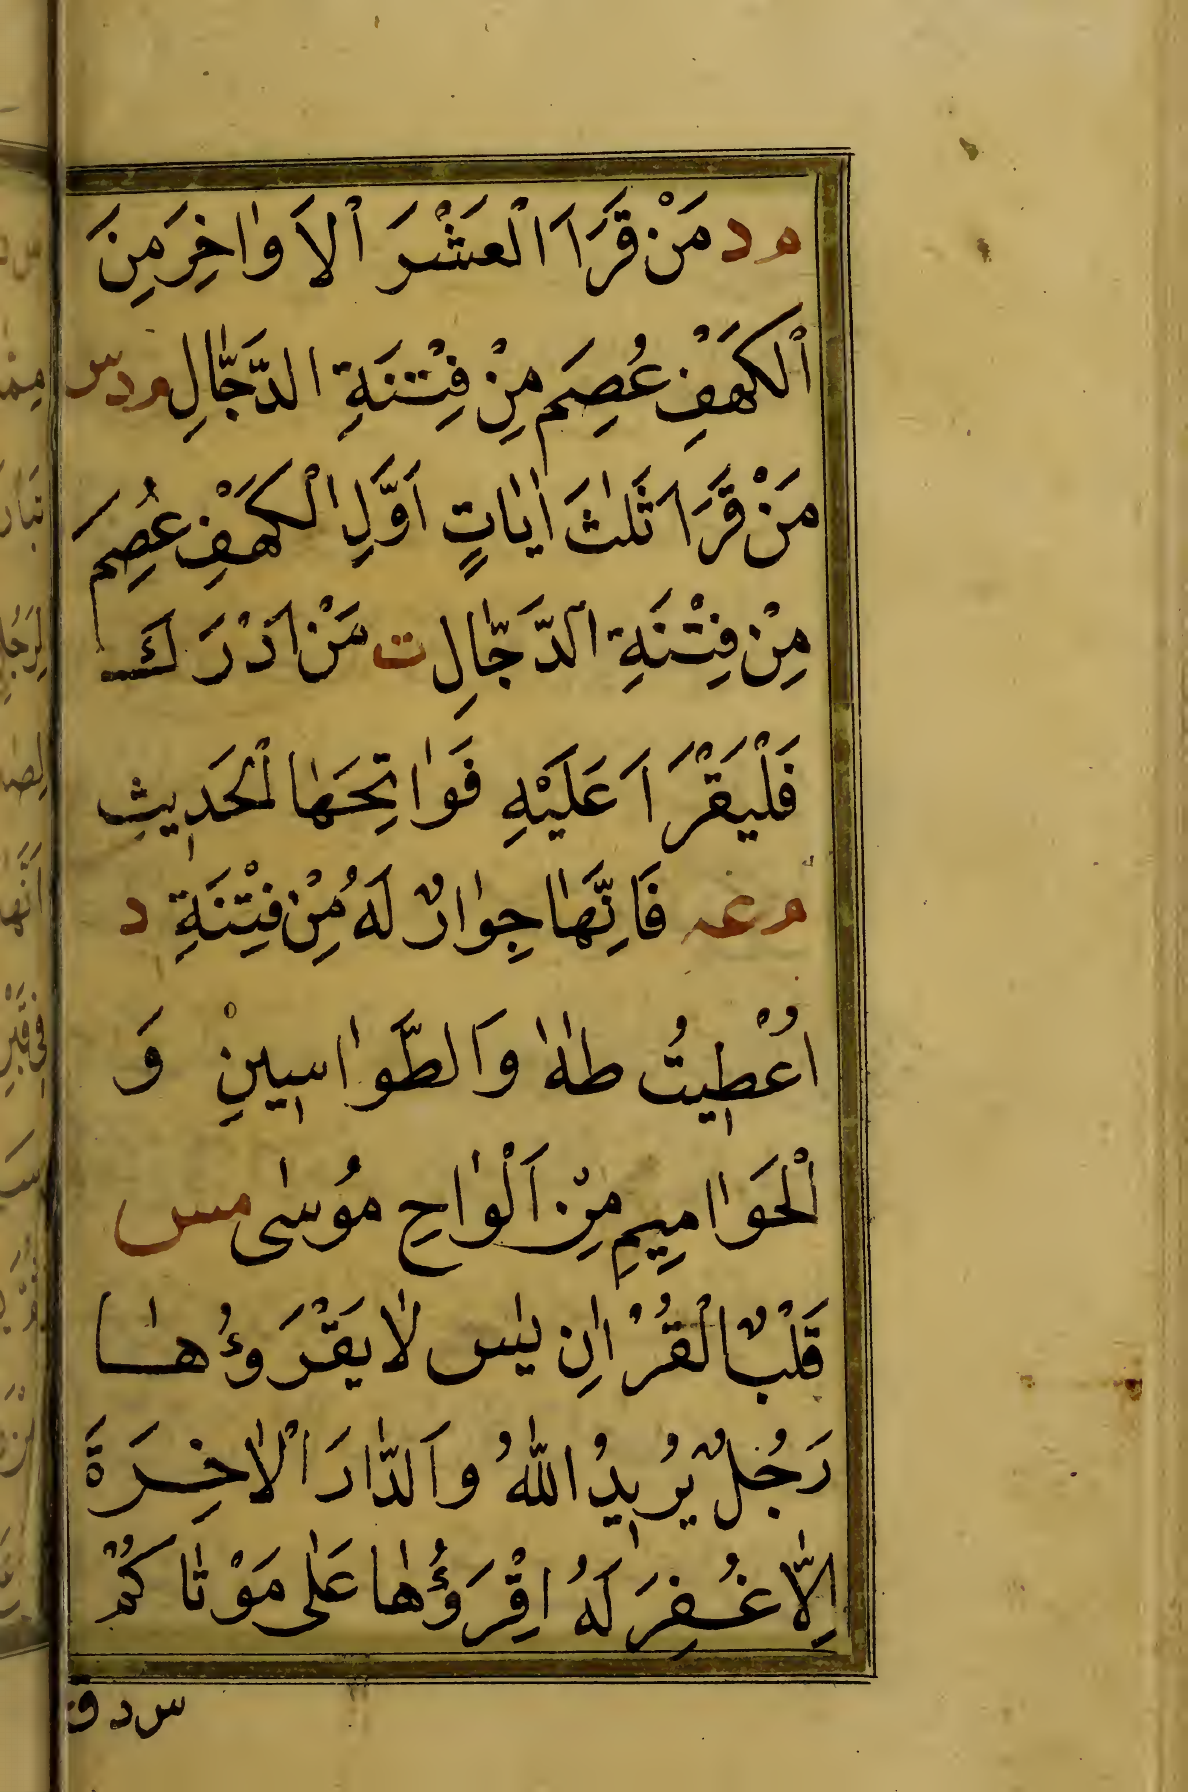 م د مَنْ قَرَاَ الْعَشْرَ اْلاَوٰاخِرَ مِنَ
اْلكَهْفِ عُصِمَ مِنْ فِتْنَةِ الدَّجّٰالِ م د س
مَنْ قَرَاَ ثَلٰثَ اٰيٰاتٍ اَوَّلِ اْلكَهْفِ عُصِمَ
مِنْ فِتْنَةِ الدَّجّٰالِ ت مَنْ اَدْرَكَ
فَلْيَقْرَاَ عَلَيْهِ فَوٰاتِحَهٰا اْلحَدِيثِ
م عه فَاِنَّهٰا جِوٰارٌ لَهُ مِنْ فِتْنَةِ د
اُعْطِيتُ طٰهٰ وَالطَّوٰاسِينِ وَ
اْلحَوٰامِيمِ مِنْ اَلْوٰاحِ مُوسٰى مس
قَلْبُ الْقُرْاٰنِ يٰس لٰا يَقْرَؤُهٰا
رَجُلٌ يُرِيدُ اللّٰهُ وَالدّٰارَ اْلاٰخِرَةَ
اِلّٰا غُفِرَ لَهُ اِقْرَؤُهٰا عَلٰى مَوْتٰاكُمْ
س د ق